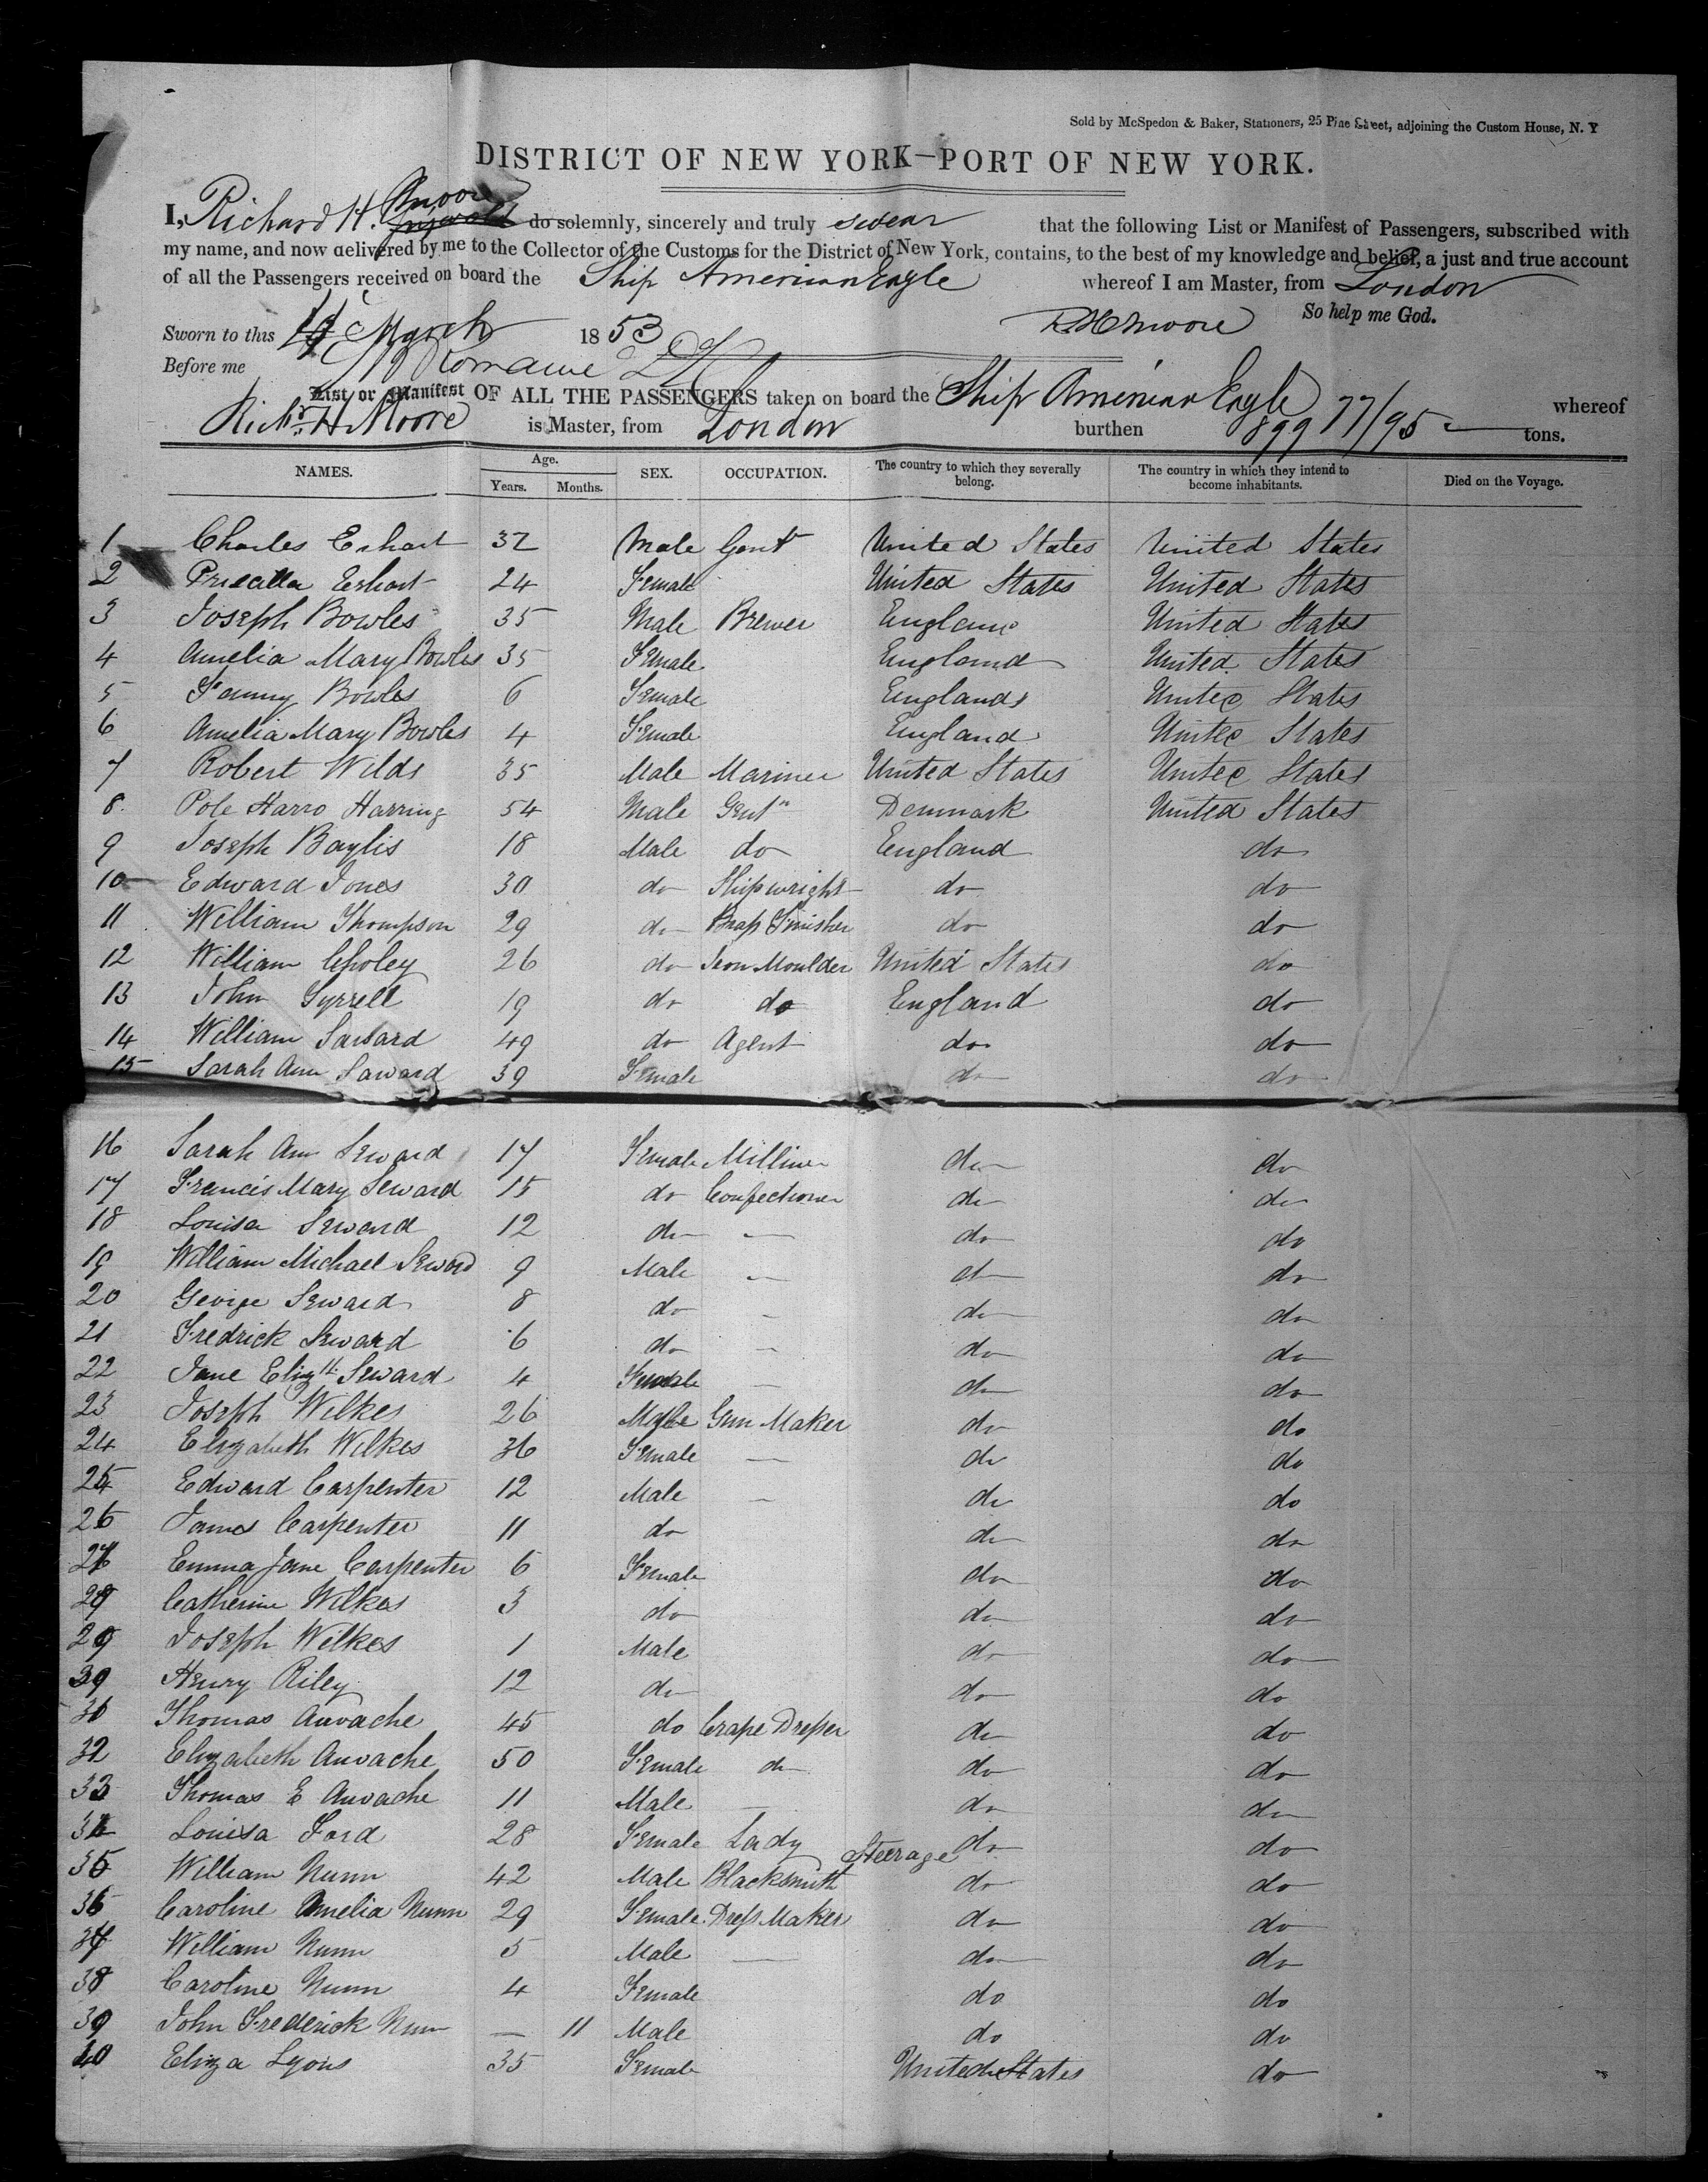 Sold by McSpedon & Baker, Stationers, 25 Pine Street, adjoining the Custom House, N. Y
DISTRICT OF NEW YORK—PORT OF NEW YORK.
Moore
I, Richard H. do solemnly, sincerely and truly swear that the following List or Manifest of Passengers, subscribed with
my name, and now delivered by me to the Collector of the Customs for the District of New York, contains, to the best of my knowledge and belief, a just and true account
of all the Passengers received on board the Ship American Eagle whereof I am Master, from London
So help me God.
Sworn to this March 1853 RHMoore
Before me Romaine
List or Manifest OF ALL THE PASSENGERS taken on board the Ship American Eagle whereof
Richd H Moore is Master, from London burthen 899 77/95 tons.
NAMES. Age. Years. Months. SEX. OCCUPATION. The country to which they severally belong. The country in which they intend to become inhabitants. Died on the Voyage.
1 Charles Erhart 32 Male Gent United States United States
2 Priscilla Erhart 24 Female United States United States
3 Joseph Bowles 35 Male Brewer England United States
4 Amelia Mary Bowles 35 Female England United States
5 Fanny Bowles 6 Female England United States
6 Amelia Mary Bowles 4 Female England United States
7 Robert Wilds 35 Male Mariner United States United States
8 Pole Harro Harring 54 Male Gentn Denmark United States
9 Joseph Baylis 18 Male do England do
10 Edward Jones 30 do Shipwright do do
11 William Thompson 29 do Brass Finisher do do
12 William Choley 26 do Iron Moulder United States do
13 John Tyrrell 19 do do England do
14 William Saward 49 do Agent do do
15 Sarah Ann Saward 39 Female do do
16 Sarah Ann Seward 17 Female Milliner do do
17 Francis Mary Seward 15 do Confectioner do do
18 Louisa Seward 12 do — do do
19 William Michael Seward 9 Male — do do
20 George Seward 8 do — do do
21 Fredrick Seward 6 do — do do
22 Jane Elizth Seward 4 Female — do do
23 Joseph Wilkes 26 Male Gun Maker do do
24 Elizabeth Wilkes 36 Female — do do
25 Edward Carpenter 12 Male — do do
26 James Carpenter 11 do do do
27 Emma Jane Carpenter 6 Female do do
28 Catherine Wilkes 3 do do do
29 Joseph Wilkes 1 Male do do
30 Henry Riley 12 do do do
31 Thomas Auvache 45 do Crape Dresser do do
32 Elizabeth Auvache 50 Female do do do
33 Thomas E Auvache 11 Male — do do
34 Louisa Ford 28 Female Lady do do
Steerage
35 William Nunn 42 Male Blacksmith do do
36 Caroline Amelia Nunn 29 Female Dress Maker do do
37 William Nunn 5 Male — do do
38 Caroline Nunn 4 Female do do
39 John Frederick Nunn — 11 Male do do
40 Eliza Lyons 35 Female United States do